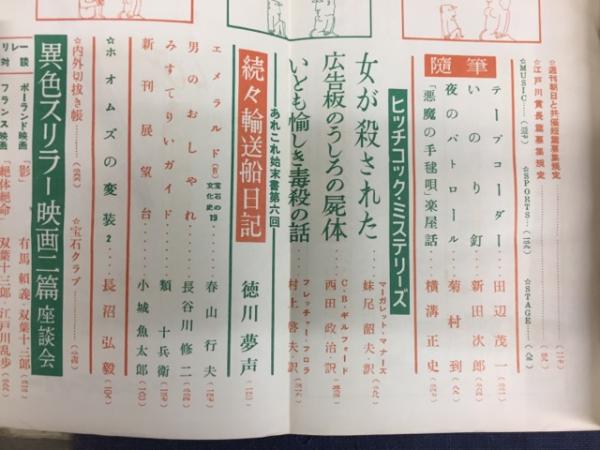 ☆週刊朝日と共催短篇募集規定
☆江戸川賞長篇募集規定
☆MUSIC
☆SPORTS
☆STAGE
随筆
テープコーダー 田辺茂一
いのり釘 新田次郎
夜のパトロール 菊村到
「悪魔の手毬唄」楽屋話 横溝正史
ヒッチコック・ミステリーズ
女が殺された マーガレット・マナーズ 妹尾韶夫訳
広告板のうしろの屍体 C・B・ギルフォード 西田政治訳
いとも愉しき毒殺の話 フレッチャー・フロラ 村上啓夫訳
あれこれ始末書第六回
続々輸送船日記 徳川夢声
エメラルド 宝石の文化史 春山行夫
男のおしゃれ 長谷川修二
みすてりいガイド 類十兵衛
新刊展望台 小城魚太郎
☆ホオムズの変装2 長沼弘毅
☆内外切抜き帳
☆宝石クラブ
異色スリラー映画二篇 座談会
ポーランド映画「影」 有馬頼義 双葉十三郎
フランス映画「絶体絶命」 双葉十三郎 江戸川乱歩